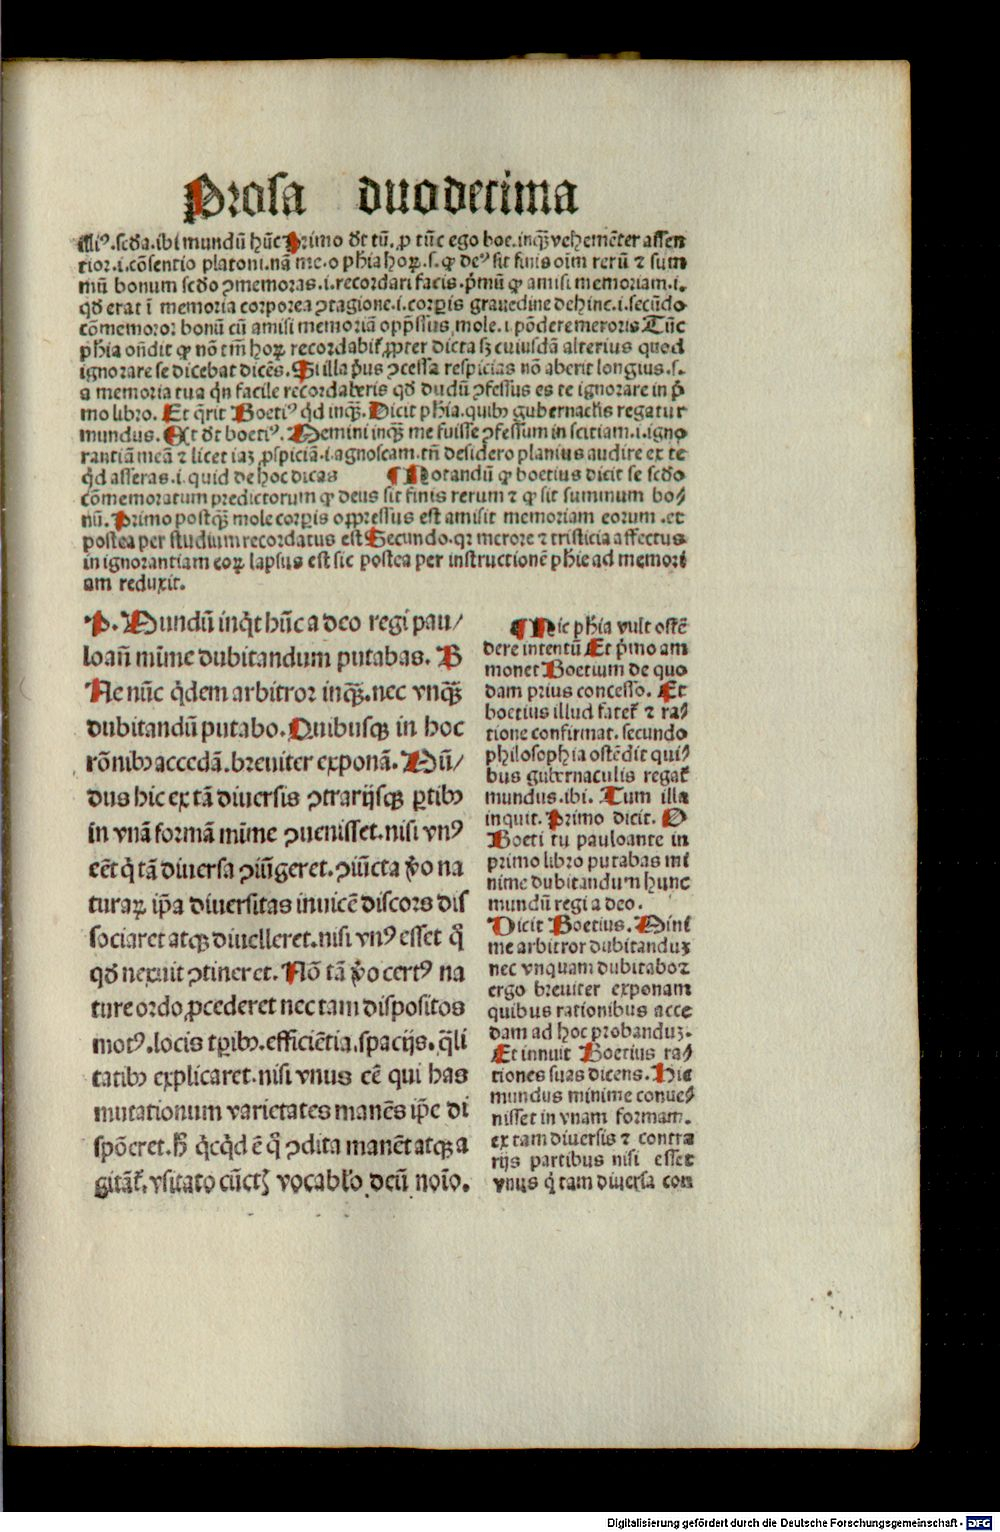 Prosa duodecima
illiꝰ.scd̄a.ibi mundū hūc Primo dt̄ tū.ꝓ tūc ego boe.inqꝫ vehemēter assen
tior.i.cōsentio platoni.nā me.o ph̄ia hoꝝ.s.ꝙ deꝰ sit finis oīm rerū ⁊ sum
mū bonum scdo ꝯmemoras.i.recordari facis.pᵐū ꝙ amisi memoriam.i.
qd̄ erat ī memoria corporea ꝯtagione.i.corꝑis grauedine dehinc.i.secūdo
cōmemoror bonū cū amisi memoriā opp̄ssus mole.i pōdere meroris Tūc
ph̄ia on̄dit ꝙ nō tm̄ hoꝝ recordabit̄ ꝓpter dicta sꝫ cuiusdā alterius quod
ignorare se dicebat dicēs. Si illa p̄us ꝯcessa respicias nō aberit longius.s.
a memoria tua qn̄ facile recordaberis qd̄ dudū ꝯfessus es te ignorare in p̄
mo libro. Et q̄rit Boetiꝰ qd̄ inqꝫ. Dicit ph̄ia.quibꝰ gubernaclis regatur
mundus. Et dt̄ boetiꝰ. Memini inqꝫ me fuisse ꝯfessum inscitiam.i.igno
rantiā meā ⁊ licet iaꝫ ꝓspiciā.i.agnoscam.tn̄ desidero planius audire ex te
qd̄ asseras.i.quid de hoc dicas ¶ Notandū ꝙ boetius dicit se scdo
cōmemoratum predictorum ꝙ deus sit finis rerum ⁊ ꝙ sit summum bo⸗
nū. Primo postqꝫ mole corꝑis oppressus est amisit memoriam eorum.et
postea per studium recordatus est Secundo.qꝛ merore ⁊ tristicia affectus
in ignorantiam eoꝝ lapsus est sic postea per instructionē ph̄ie ad memori
am reduxit.
P. Mundū inq̄t hūc a deo regi pau/
loan̄ mīme dubitandum putabas. B
Ne nūc qdem arbitror inqꝫ.nec vnqꝫ
dubitandū putabo. Quibusqꝫ in hoc
rōnibꝰ accedā.breuiter exponā. Mū/
dus hic ex tā diuersis ꝯtrarijsqꝫ ꝑtibꝰ
in vnā formā mīme ꝯuenisset.nisi vnꝰ
eēt q̇ tā diuersa ꝯiūgeret.ꝯiūcta v̄o na
turaꝝ ip̄a diuersitas inuicē discors dis
sociaret atqꝫ diuelleret.nisi vnꝰ esset q̇
qd̄ nexuit ꝯtineret. Nō tā v̄o certꝰ na
ture ordo ꝓcederet nec tam dispositos
motꝰ.locis tꝑibꝰ.efficiētia.spacijs.qͣli
tatibꝰ explicaret.nisi vnus eē qui has
mutationum varietates manēs ip̄e di
spōeret.h̄ qͥcqͥd ē qͦ ꝯdita manēt atqꝫ a
gitāt̄.vsitato cūctꝭ vocabl̄o deū noīo.
¶ Hic ph̄ia vult ostē
dere intentū Et p̄mo am
monet Boetium de quo
dam prius concesso. Et
boetius illud fatet̄ ⁊ ra⸗
tione confirmat. secundo
philosophia ostēdit qui⸗
bus gubernaculis regat̄
mundus.ibi. Tum illa
inquit. Primo dicit. O
Boeti tu pauloante in
primo libro putabas mi
nime dubitandum hunc
mundū regi a deo.
Dicit Boetius. Mini
me arbitror dubitanduꝫ
nec vnquam dubitabo⁊
ergo breuiter exponam
quibus rationibus acce
dam ad hoc probanduꝫ.
Et innuit Boetius ra⸗
tiones suas dicens. Hic
mundus minime conue⸗
nisset in vnam formam.
ex tam diuersis ⁊ contra
rijs partibus nisi esset
vnus q̇ tam diuersa con
Digitalisierung gefördert durch die Deutsche Forschungsgemeinschaft - DFG